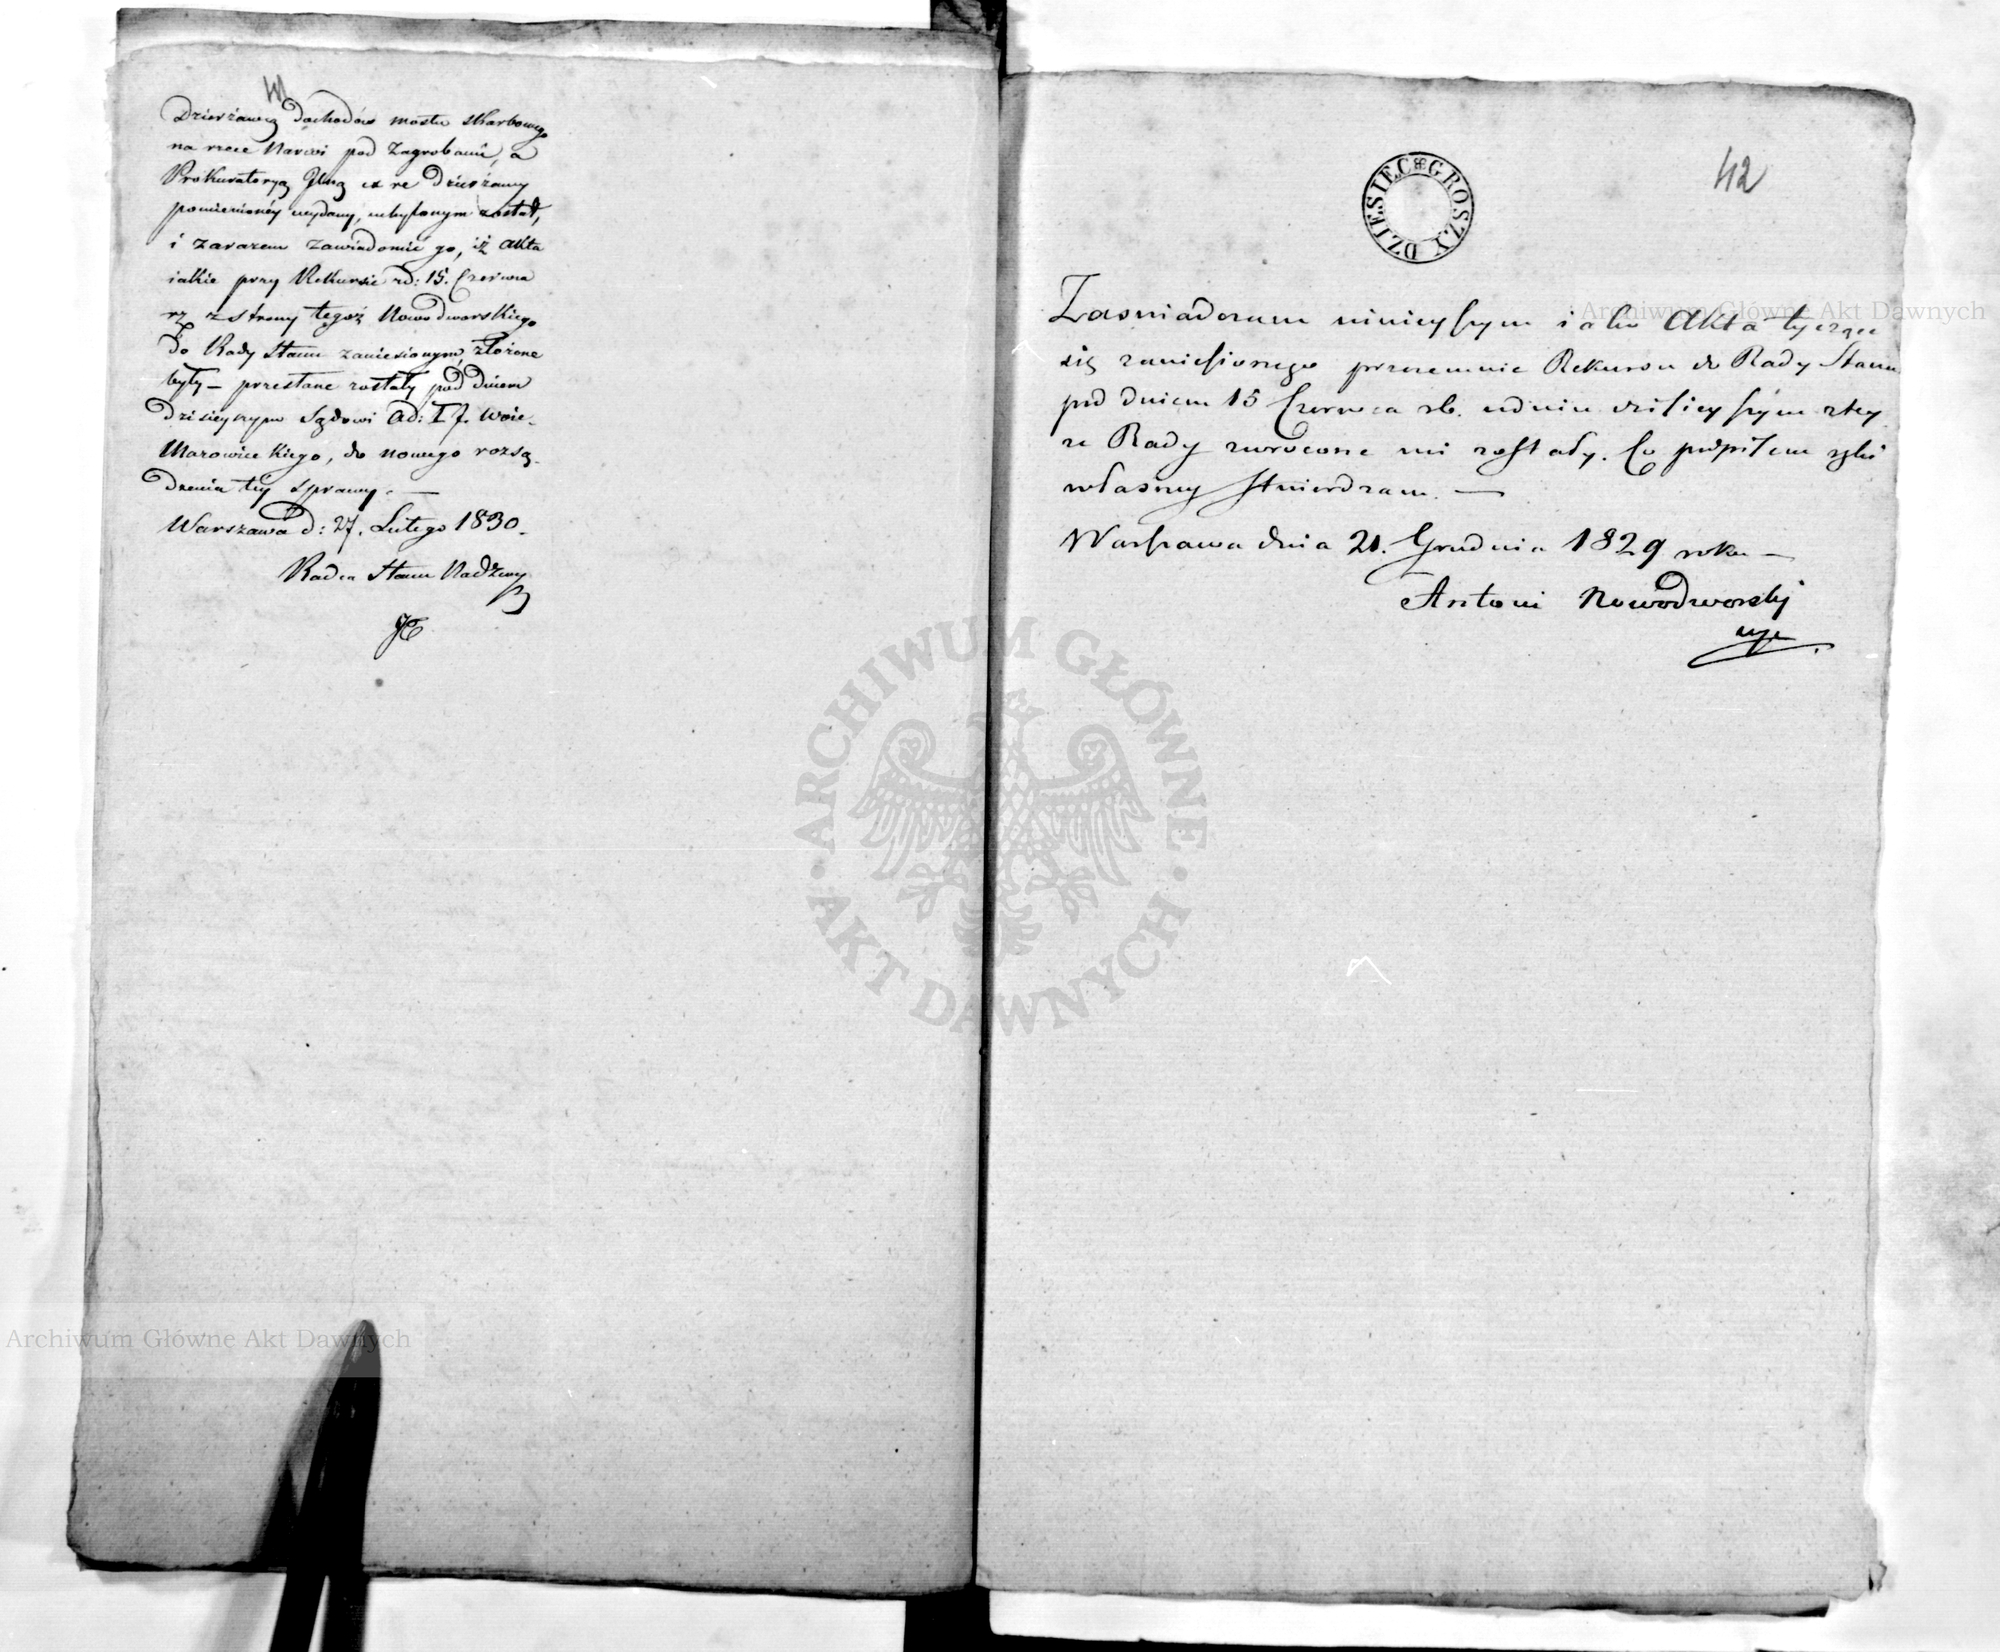 41
Dzierżawcą dochodów mostu skarbowego
na rzece Narwi pod Zagrobami, a
Prokuratoryą Jlną ex re dzierżawy
pomienionéy wydany, uchylonym został,
i zarazem zawiadomić go, iż Akta
iakie przy Rekursie zd: 15. Czerwca
rz z strony tegoż Nowodworskiego
do Rady Stanu zaniesionym, złożone
były — przesłane zostały pod dniem
dzisieyszym Sądowi Ad: I J. Woie-
Mazowieckiego, do nowego rozsą-
dzenia téy sprawy. —
Warszawa d: 27. Lutego 1830.
Radca Stanu Nadzwy
42
DZIESIĘC GROSZY
Zaswiadczam ninieyszym iako Akta tyczące
się zaniesionego przezemnie Rekursu do Rady Stanu
pod dniem 15 Czerwca rb. w dniu dzisieyszym z tey
ze Rady zwrócone mi zostały. Co podpisem ręki
własney stwierdzam. —
Warszawa dnia 21. Grudnia 1829 roku —
Antoni Nowodworski
mp
Archiwum Główne Akt Dawnych
ARCHIWUM GŁÓWNE
AKT DAWNYCH
Archiwum Główne Akt Dawnych